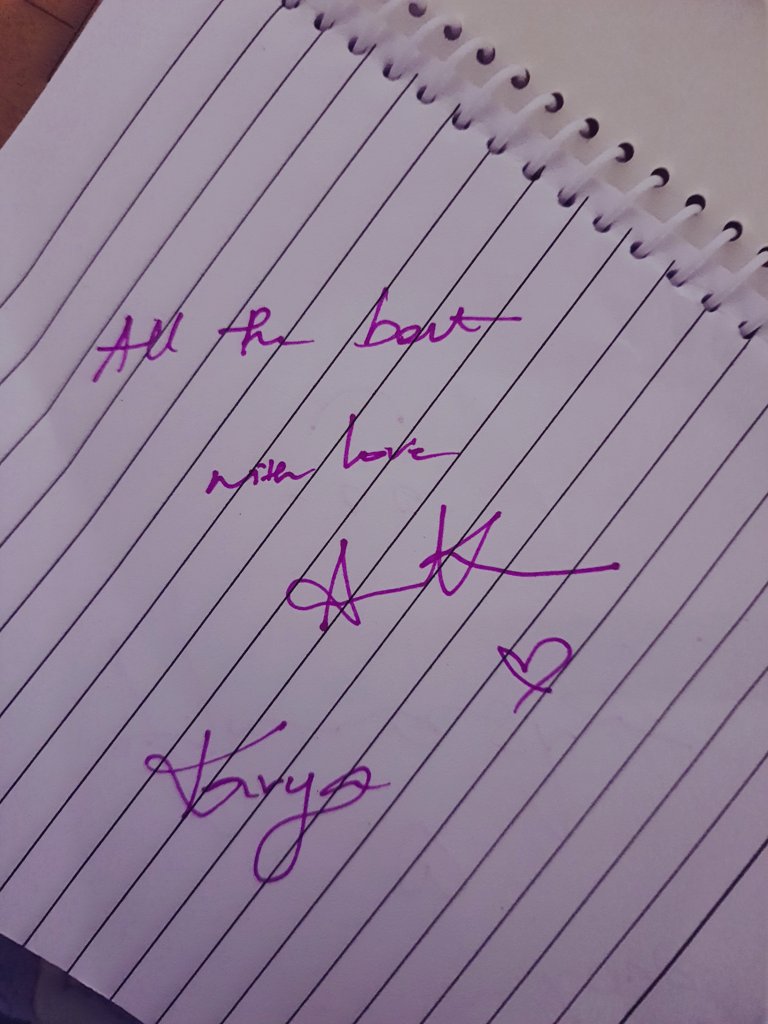 All the best
with love
AK
Kavya